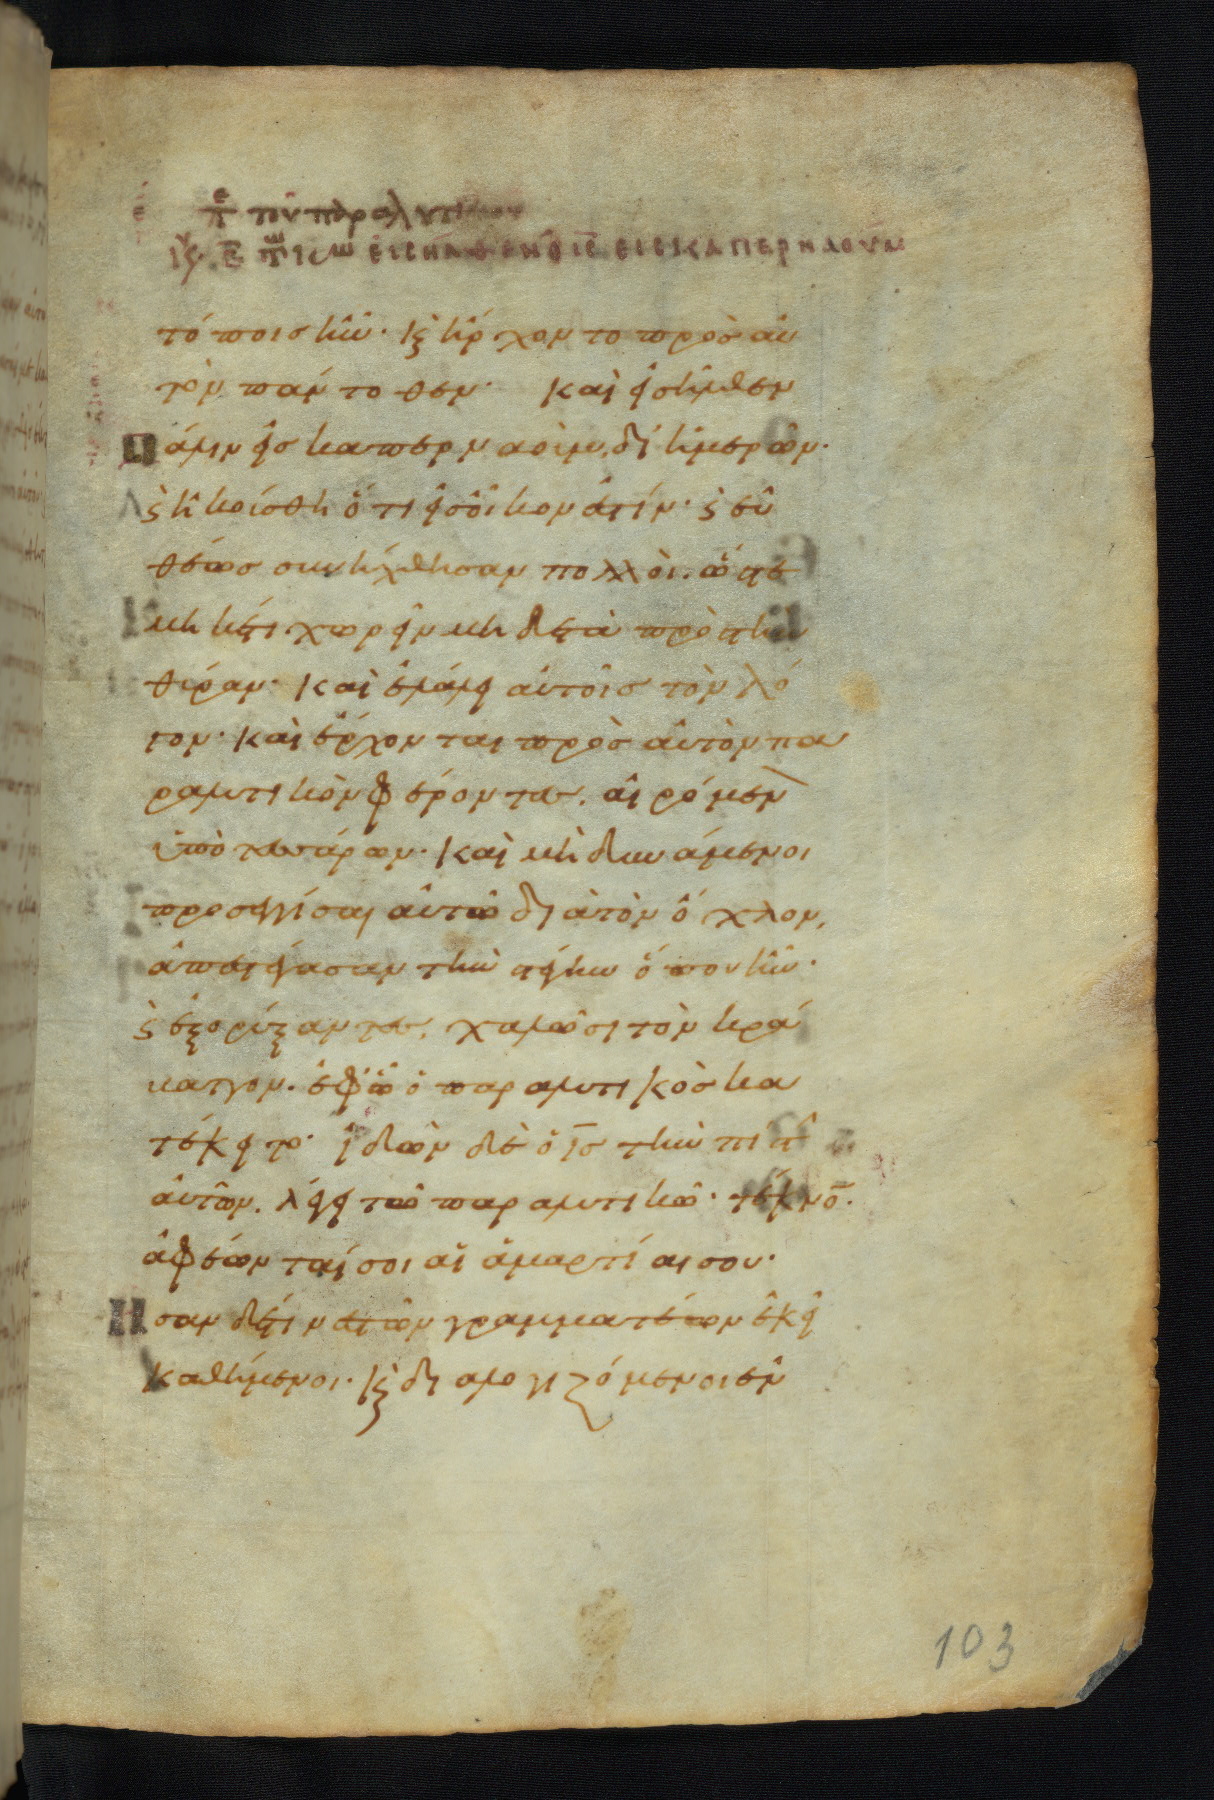 ε περι του παραλυτικου
τόποις ἦν· κ ἤρχοντο πρὸς αὐ
τὸν πάντοθεν· καὶ εἰσῆλθεν
πάλιν εἰς καπερναούμ, δι' ἡμερῶν·
κ ἠκούσθη ὅτι εἰς οἶκον ἐστίν· κ εὐ
θέως συνήχθησαν πολλοὶ. ὥστε
μηκέτι χωρεῖν μηδὲ τὰ πρὸς τὴν
θύραν· καὶ ἐλάλει αὐτοῖς τὸν λό
γον· καὶ ἔρχονται πρὸς αὐτὸν πα
ραλυτικὸν φέροντες. αἰρόμενον
ὑπὸ τεσσάρων· καὶ μὴ δυνάμενοι
προσεγγίσαι αὐτῶ διὰ τὸν ὄχλον,
ἀπεστέγασαν τὴν στέγην ὅπου ἦν·
κ ἐξορύξαντες, χαλῶσι τὸν κρά
βατον. ἐφ' ὧ ὁ παραλυτικὸς κα
τέκειτο· ἰδὼν δὲ ὁ ις τὴν πίστιν
αὐτῶν. λέγει τῶ παραλυτικῶ· τέκνον.
ἀφέωνταί σοι αἱ ἁμαρτίαι σου·
Ησαν δέ τινες τῶν γραμματέων ἐκεῖ
καθήμενοι· κ διαλογιζόμενοι ἐν
103